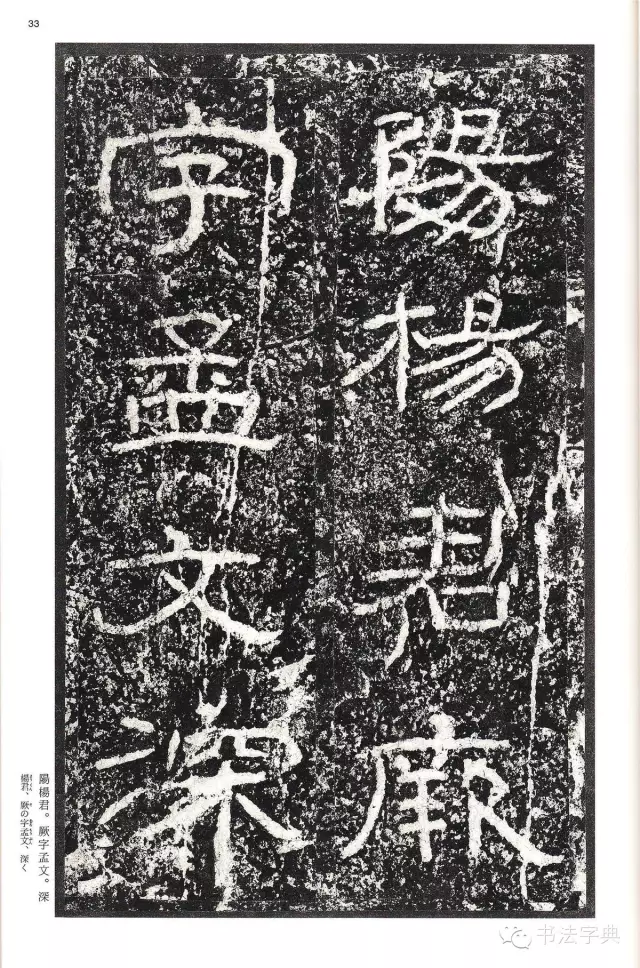 33
陽楊君厥
字孟文深
陽楊君。厥字孟文。深
楊君、厥の字孟文、深く
书法字典